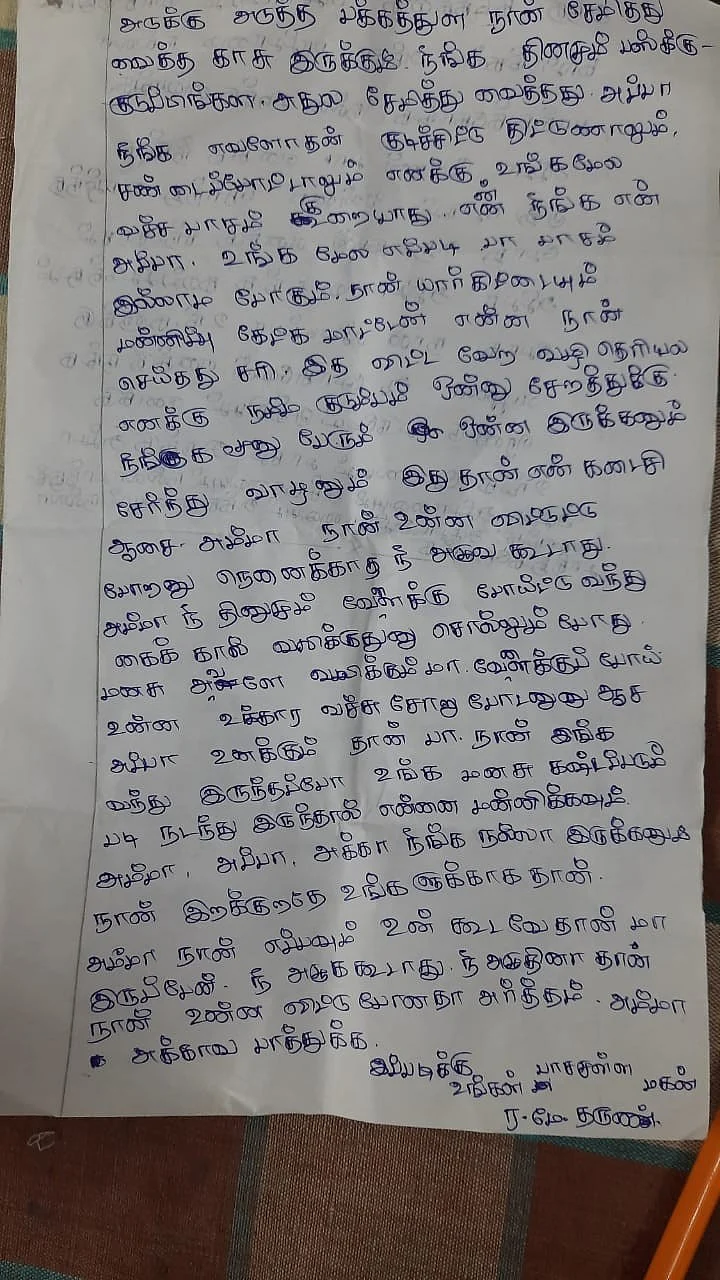 அடுக்கு அடுத்த பக்கத்துள நான் சேமித்து
வைத்த காசு இருக்கும். நீங்க தினகும் பஸ்க்கு-
குடுப்பிங்கள. அதுல சேமித்து வைத்தது. அப்பா
நீங்க எவளோதன் குடிச்சிட்டு திட்டுனாலும்,
சண்டைப்போட்டாலும் எனக்கு உங்கமேல
வச்ச பாசம் குறையாது. என் நீங்க என்
அப்பா. உங்க மேல எப்படி பா பாசம்
இல்லாம போகும். நான் யார்கிட்டையும்
மன்னிப்பு கேழ்க மாட்டேன் என்ன நான்
செய்தது சரி. இத விட்ட வேற வழி தெரியல
எனக்கு நம்ம குடும்பம் ஒன்னு சேறத்துக்கு.
நீங்க மூனு பேரும் ஒன்ன இருக்கனும்
சேர்ந்து வாழனும் இது தான் என் கடைசி
ஆசை. அம்மா நான் உன்ன விட்டுட்டு
போறனு நெனைக்காத நீ அழுவ கூடாது.
அம்மா நீ தினமும் வேளைக்கு போய்ட்டு வந்து
கைக் கால் வலிக்குதுனு சொல்லும் போது
மனசு அவ்ளோ வலிக்கும் மா. வேளைக்குப் போய்
உன்ன உக்கார வச்சு சோறு போடனுனு ஆச
அப்பா உனக்கும் தான் பா. நான் இங்க
வந்து இருந்தப்போ உங்க மனசு கஷ்டப்படும்
படி நடந்து இருந்தால் என்னை மன்னிக்கவும்.
அம்மா, அப்பா, அக்கா நீங்க நல்லா இருக்கனும்
நான் இறக்குறதே உங்களுக்காக தான்.
அம்மா நான் எப்பவும் உன் கூடவே தான் மா
இருப்பேன். நீ அழுககூடாது. நீ அழுதினா தான்
நான் உன்ன விட்டு போனதா அர்த்தம். அம்மா
அக்காவ பாத்துக்க.
இப்படிக்கு பாசமுள்ள
உங்கள் மகன்
ர.மே. தருண்.